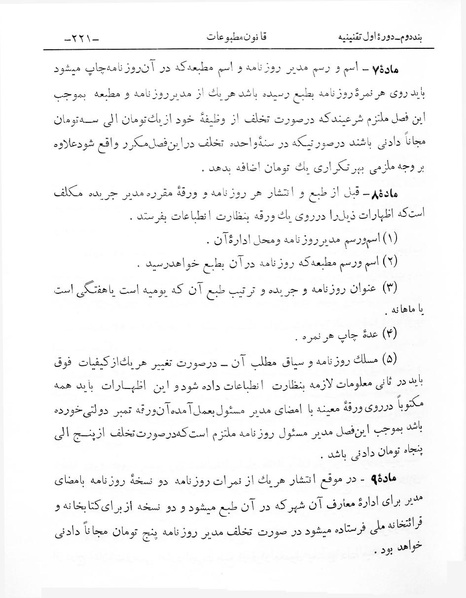 بنددوم ـ دورهٔ اول تقنینیه قانون مطبوعات ـ۲۲۱ـ
مادهٔ ۷ ـ اسم و رسم مدیر روزنامه و اسم مطبعه که در آن روزنامه چاپ میشود
باید روی هر نمرهٔ روزنامه بطبع رسیده باشد هریك از مدیر روزنامه و مطبعه بموجب
این فصل ملتزم شرعیند که درصورت تخلف از وظیفهٔ خود از یك تومان الی سه تومان
مجاناً دادنی باشند درصورتیکه در سنهٔ واحده تخلف در این فصل مکرر واقع شود علاوه
بر وجه ملزمی بهر تکراری یك تومان اضافه بدهد .
مادهٔ ۸ ـ قبل از طبع و انتشار هر روزنامه و ورقهٔ مقرره مدیر جریده مکلف
است که اظهارات ذیل را در روی یك ورقه بنظارت انطباعات بفرستد .
(۱) اسم و رسم مدیر روزنامه و محل ادارهٔ آن .
(۲) اسم و رسم مطبعه که روزنامه در آن بطبع خواهد رسید .
(۳) عنوان روزنامه و جریده و ترتیب طبع آن که یومیه است یا هفتگی است
یا ماهانه .
(۴) عدهٔ چاپ هر نمره .
(۵) مسلك روزنامه و سیاق مطلب آن ـ درصورت تغییر هریك از کیفیات فوق
باید در ثانی معلومات لازمه بنظارت انطباعات داده شود و این اظهارات باید همه
مکتوباً در روی ورقهٔ معینه با امضای مدیر مسئول بعمل آمده آن ورقه تمبر دولتی خورده
باشد بموجب این فصل مدیر مسئول روزنامه ملتزم است که درصورت تخلف از پنج الی
پنجاه تومان دادنی باشد .
مادهٔ ۹ ـ در موقع انتشار هریك از نمرات روزنامه دو نسخهٔ روزنامه بامضای
مدیر برای ادارهٔ معارف آن شهر که در آن طبع میشود و دو نسخه از برای کتابخانه و
قرائتخانه ملی فرستاده میشود در صورت تخلف مدیر روزنامه پنج تومان مجاناً دادنی
خواهد بود .